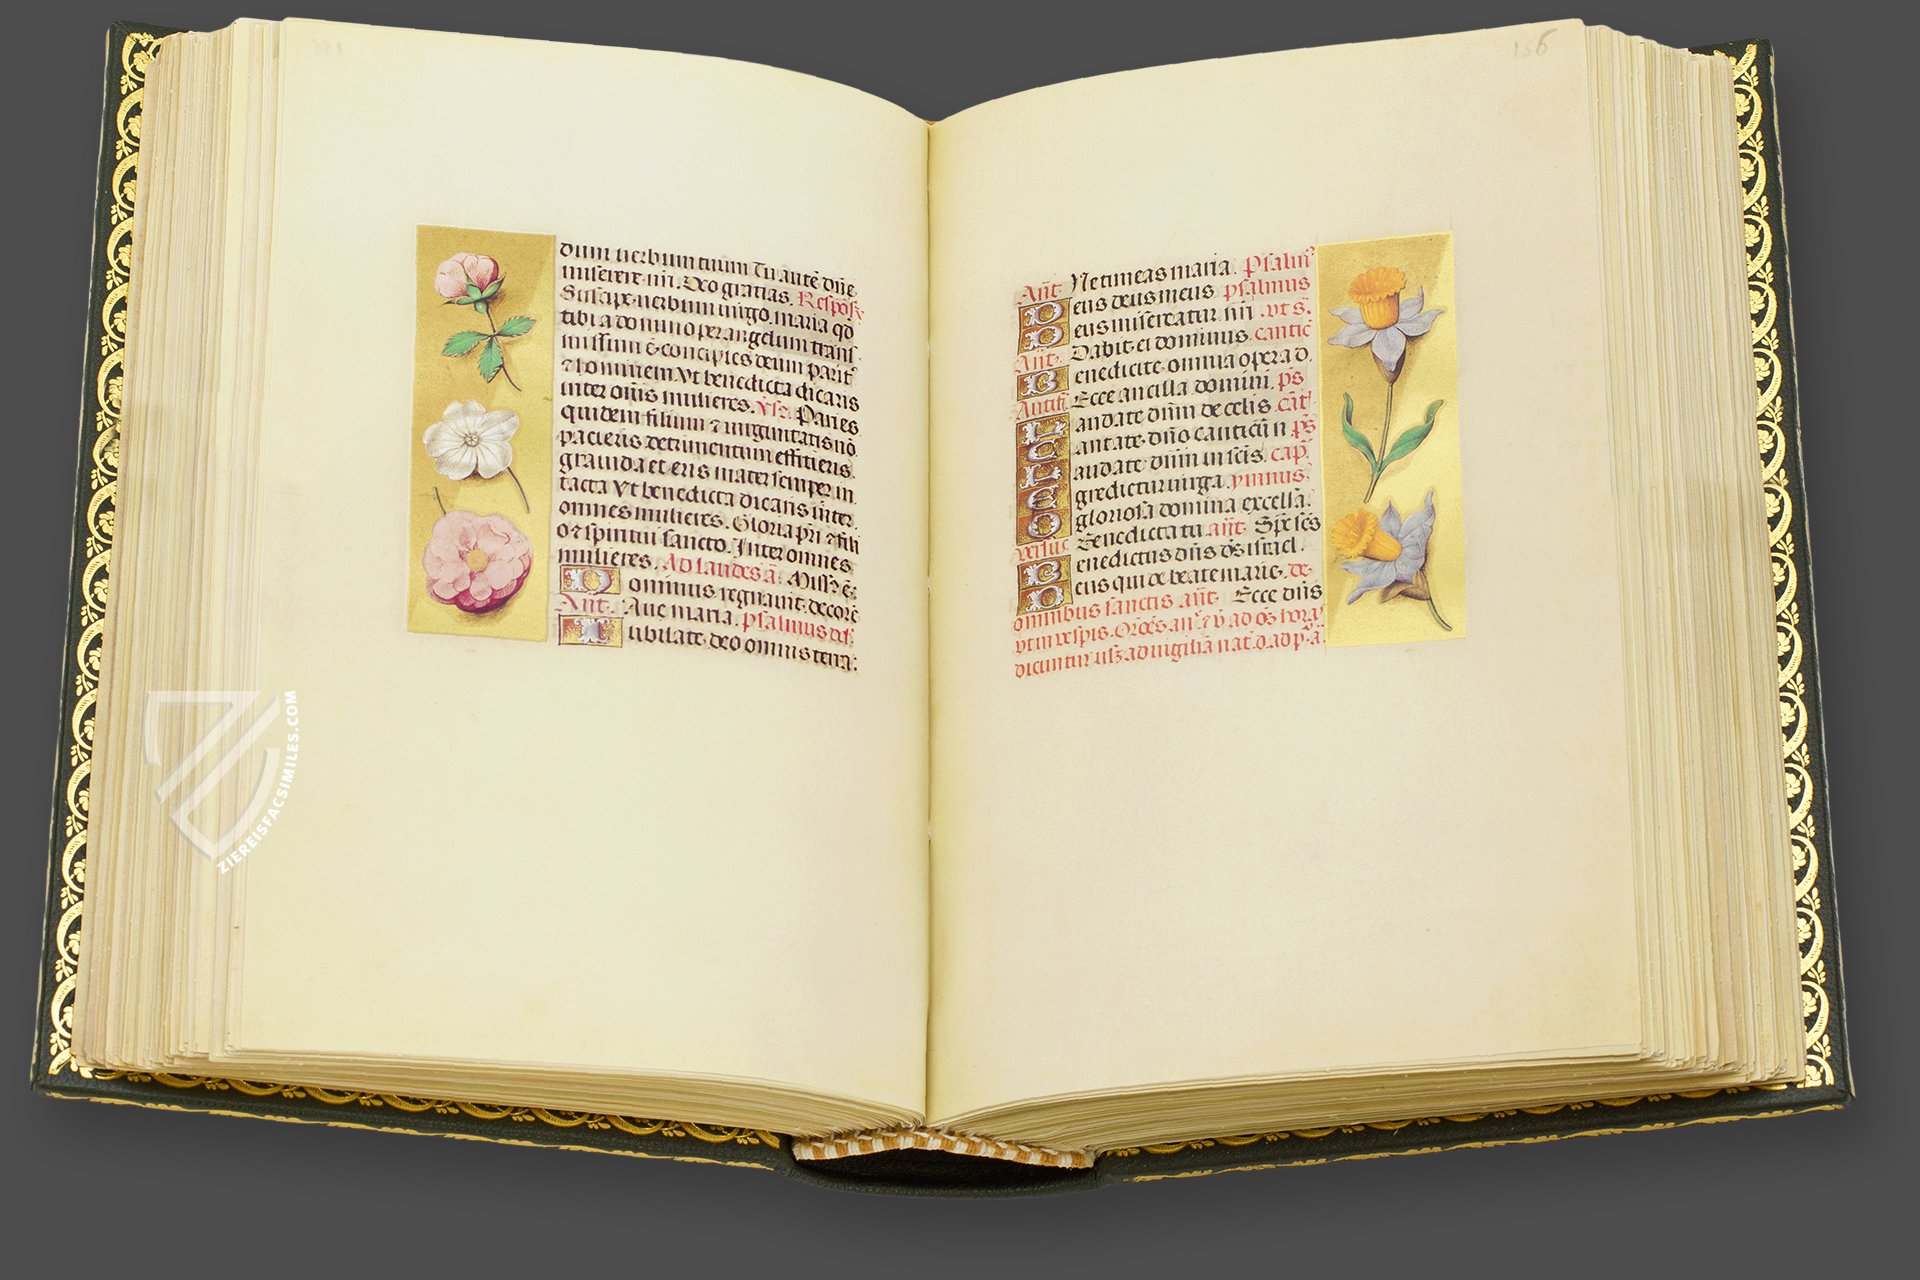 dium uerbum tuum Tu autē dn̄e
miserere nr̄i. Deo gratias. Respōs.
Suscipe uerbum uirgo maria qđ
tibi a domino per angelum trans
missum ē concipies deum parit̄
⁊ hominem Vt benedicta dicaris
inter om̄s mulieres. Vſ. Paries
quidem filium ⁊ uirginitatis nō
pacieris detrimentum efficieris
grauida et eris mater semper in
tacta Vt benedicta dicaris inter
omnes mulieres. Gloria pr̄i ⁊ fili
o ⁊ spiritui sancto. Inter omnes
mulieres. Ad laudes ā. Miss⁹ ē.
Dominus regnauit decorē
Ant. Aue maria. psalmus del.
Iubilate deo omnis terra.
126
Ant̄. Ne timeas maria. Psalm⁹
Deus deus meus psalmus
Deus misereatur nr̄i .vt s̄.
Ant̄. Dabit ei dominus cantic̄
Benedicite omnia opera d.
Antif̄. Ecce ancilla domini. p̄s
Laudate dn̄m de celis. cāt̄
Cantate dn̄o canticū n p̄s
Laudate dn̄m in sc̄is. cap̄.
Egredietur uirga. ymnus.
O gloriosa domina excelsa.
versus Benedicta tu ant̄ Spē sc̄s
Benedictus dn̄s d̄s israel.
Deus qui de beate marie. de
omnibus sanctis ant̄. Ecce dn̄s
vt in vesp̄is. Om̄es an̄. ⁊ v̄ ad os̄ hora⁹
dicuntur usz ad uigiliā nat. d. ad p. ā.
ZIEREISFACSIMILES.COM